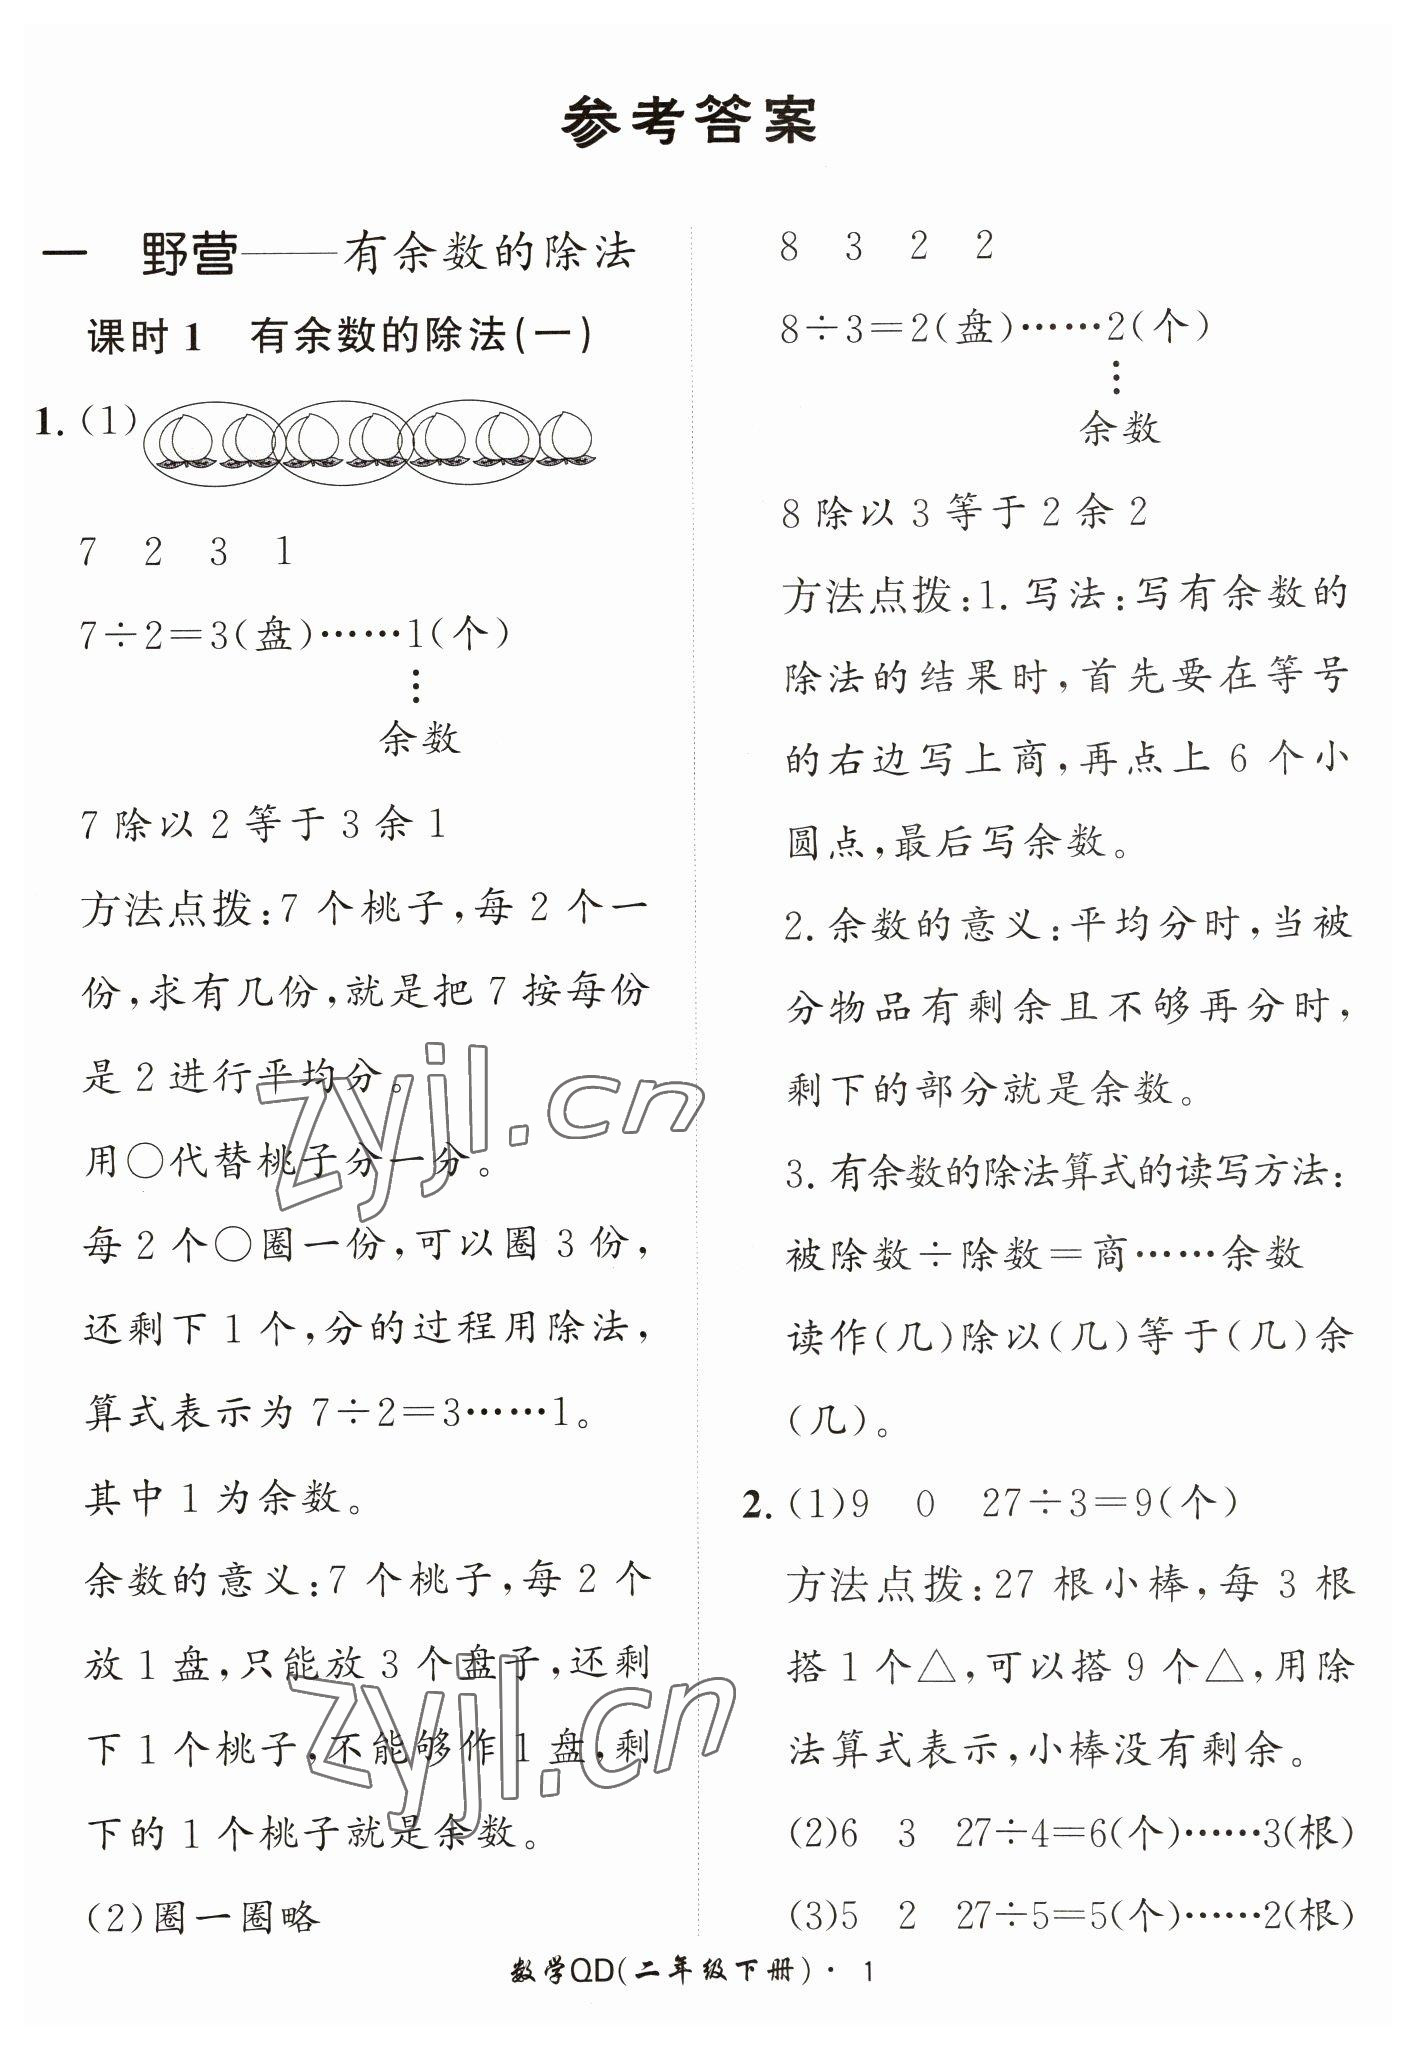 参考答案
一 野营——有余数的除法
课时1 有余数的除法(一)
1.(1)
7 2 3 1
7÷2=3(盘)……1(个)
⋮
余数
7除以2等于3余1
方法点拨:7个桃子,每2个一
份,求有几份,就是把7按每份
是2进行平均分。
用○代替桃子分一分。
每2个○圈一份,可以圈3份,
还剩下1个,分的过程用除法,
算式表示为7÷2=3……1。
其中1为余数。
余数的意义:7个桃子,每2个
放1盘,只能放3个盘子,还剩
下1个桃子,不能够作1盘,剩
下的1个桃子就是余数。
(2)圈一圈略
8 3 2 2
8÷3=2(盘)……2(个)
⋮
余数
8除以3等于2余2
方法点拨:1.写法:写有余数的
除法的结果时,首先要在等号
的右边写上商,再点上6个小
圆点,最后写余数。
2.余数的意义:平均分时,当被
分物品有剩余且不够再分时,
剩下的部分就是余数。
3.有余数的除法算式的读写方法:
被除数÷除数=商……余数
读作(几)除以(几)等于(几)余
(几)。
2.(1)9 0 27÷3=9(个)
方法点拨:27根小棒,每3根
搭1个△,可以搭9个△,用除
法算式表示,小棒没有剩余。
(2)6 3 27÷4=6(个)……3(根)
(3)5 2 27÷5=5(个)……2(根)
zyjl.cn
zyjl.cn
数学QD(二年级下册)·1